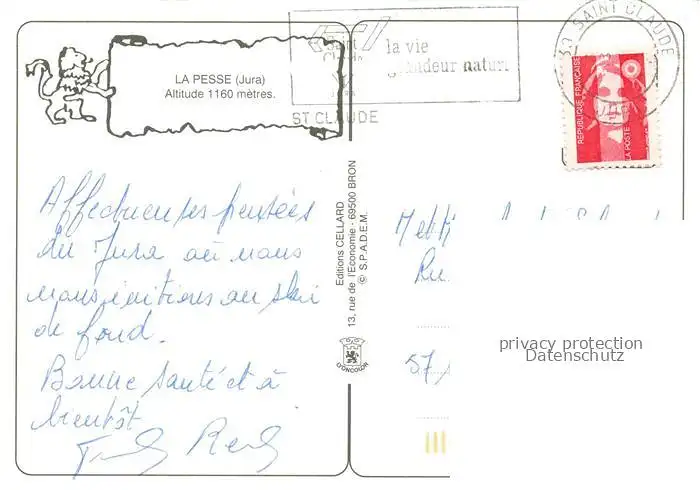 LA PESSE (Jura)
Altitude 1160 mètres.
la vie
grandeur nature
ST CLAUDE
39 SAINT CLAUDE
REPUBLIQUE FRANÇAISE
LA POSTE
Affectueuses pensées
du Jura où nous
nous initions au ski
de fond.
Bonne santé et à
bientôt
Editions CELLARD
13, rue de l'Economie - 69500 BRON
© S.P.A.D.E.M.
LYONCOLOR
57
privacy protection
Datenschutz